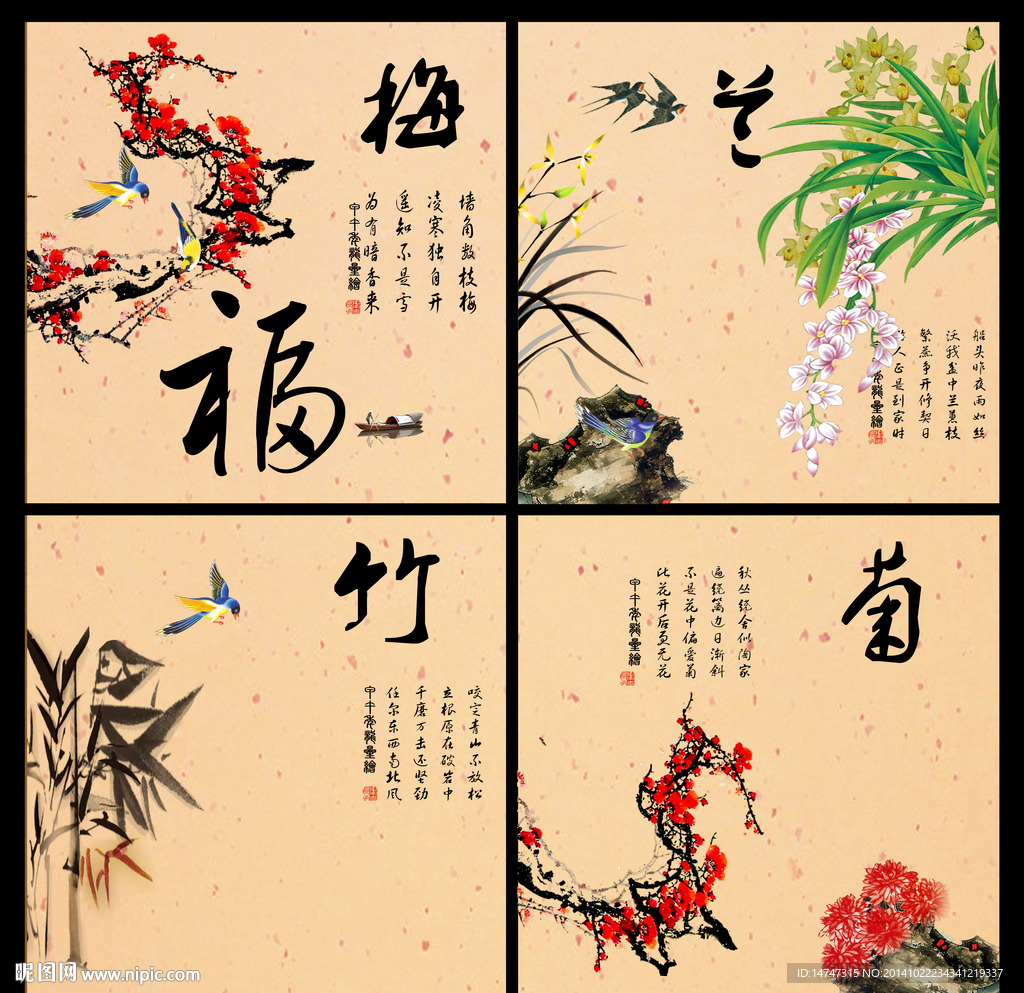 梅
墙角数枝梅
凌寒独自开
遥知不是雪
为有暗香来
福
兰
船头昨夜雨如丝
沃我盆中兰蕙枝
繁蕊争开修禊日
人正是到家时
竹
咬定青山不放松
立根原在破岩中
千磨万击还坚劲
任尔东西南北风
菊
秋丛绕舍似陶家
遍绕篱边日渐斜
不是花中偏爱菊
此花开后更无花
昵图网 www.nipic.com
ID:14747315 NO:20141022234341219337